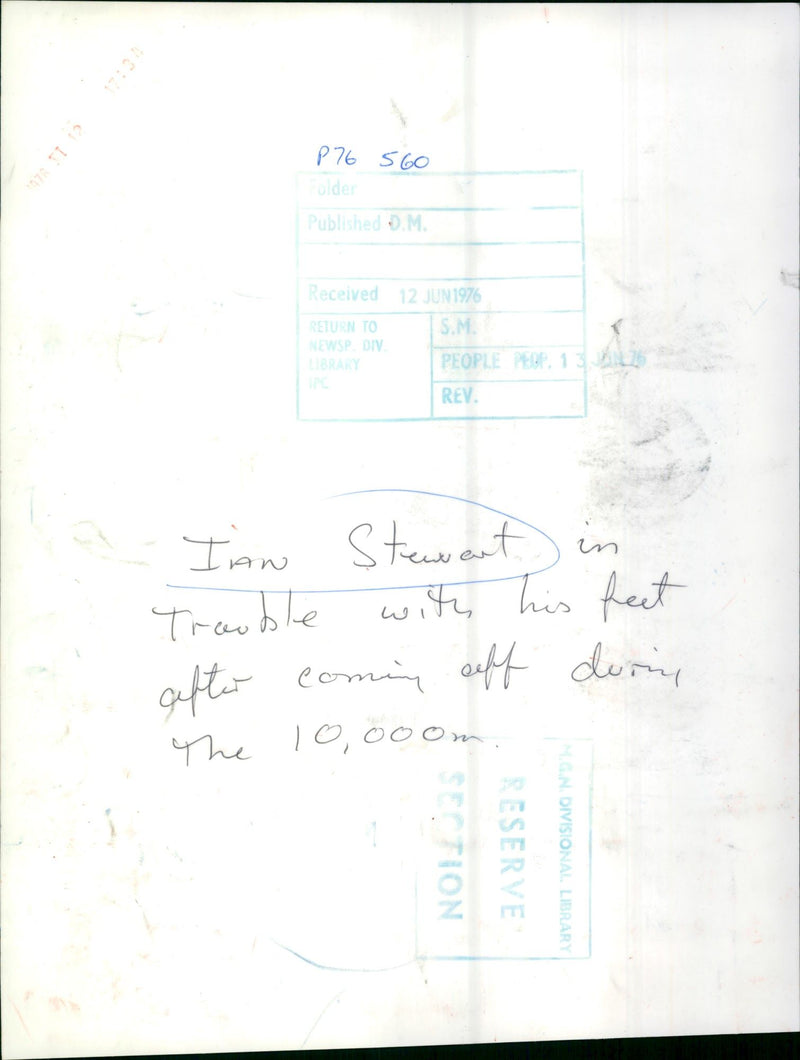 17:30
P76 560
Folder
Published D.M.
Received 12 JUN 1976
RETURN TO
NEWSP. DIV.
LIBRARY
IPC
S.M.
PEOPLE PEOP. 13 JUN 76
REV.
Ian Stewart in
Trouble with his feet
after coming off during
The 10,000m.
M.G.N. DIVISIONAL LIBRARY
RESERVE
SECTION